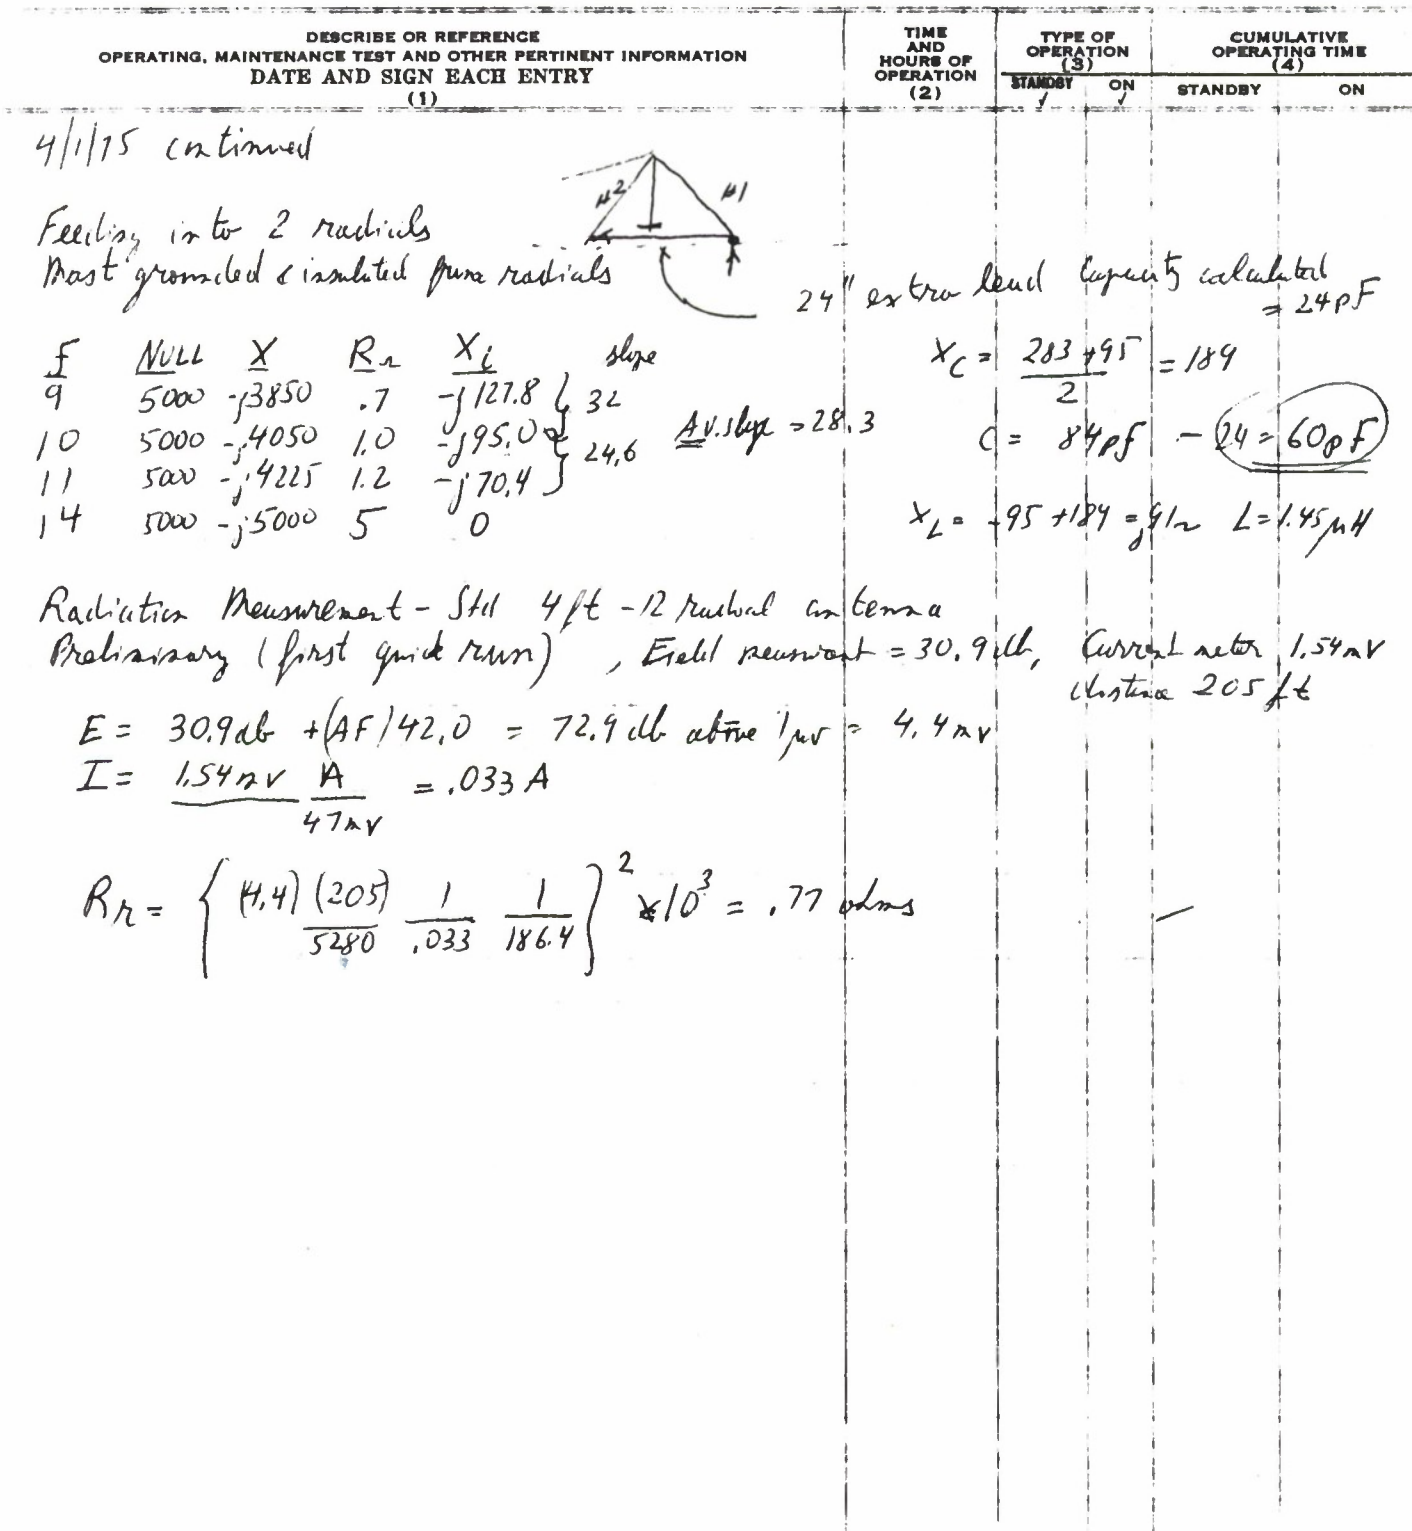 DESCRIBE OR REFERENCE
OPERATING, MAINTENANCE TEST AND OTHER PERTINENT INFORMATION
DATE AND SIGN EACH ENTRY
(1)
TIME
AND
HOURS OF
OPERATION
(2)
TYPE OF
OPERATION
(3)
STANDBY ON
✓ ✓
CUMULATIVE
OPERATING TIME
(4)
STANDBY ON
4/1/75 continued
#2 #1
Feeding into 2 radials
Mast grounded & insulated from radials
24" extra lead Capacity calculated
= 24pF
f NULL X Rr Xi slope
9 5000 -j3850 .7 -j127.8 } 32
10 5000 -j4050 1.0 -j95.0 } 24.6 Av. slope = 28.3
11 5000 -j4225 1.2 -j70.4
14 5000 -j5000 5 0
XC = 283 + 95 / 2 = 189
C = 84pF - 24 = 60pF
XL = -95 + 189 = j91~ L = 1.45μH
Radiation Measurement - Std 4ft - 12 radial antenna
Preliminary (first quick run), Field = 30.9 db, Current meter 1.54mV
distance 205 ft
E = 30.9db + (AF) 42.0 = 72.9 db above 1μv = 4.4mv
I = 1.54mv A / 47mv = .033 A
Rr = { (4.4) (205) / 5280 1 / .033 1 / 186.4 }² x 10³ = .77 ohms